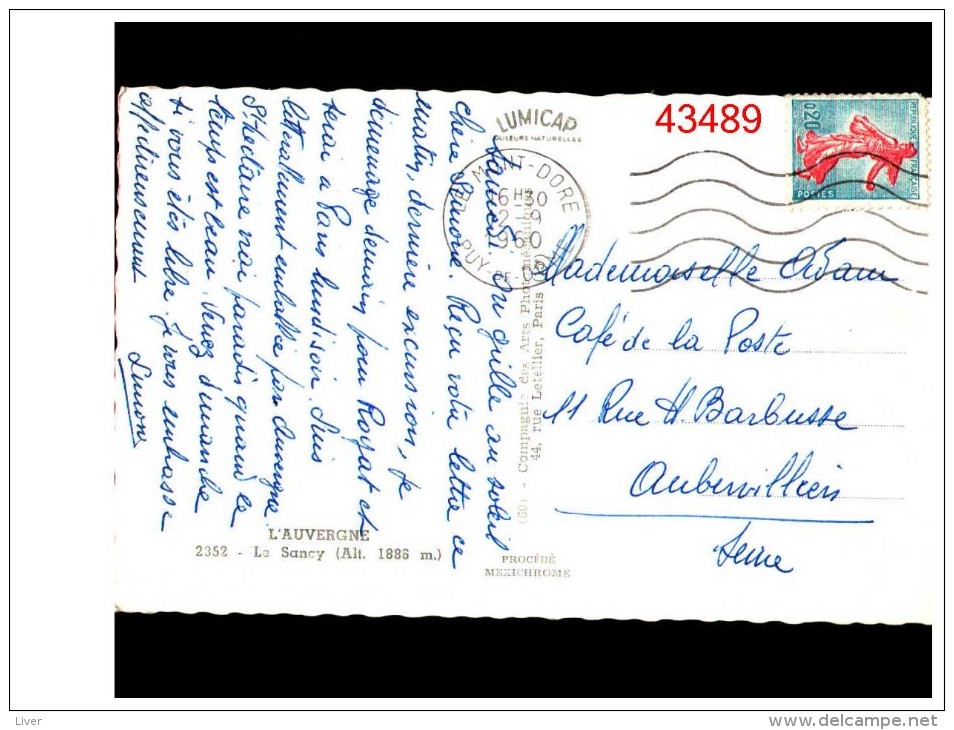 43489
LUMICAP
COULEURS NATURELLES
REPUBLIQUE FRANÇAISE
0,20
POSTES
MONT-DORE
16H30
2-9
1960
PUY-DE-DÔME
Samedi. On grille au soleil
chère Simone. Reçu votre lettre ce
matin, dernière excursion, je
déménage demain pour Royat et
serai à Paris lundi soir. Suis
littéralement emballée par Auvergne
St Nectaire vrai paradis quand le
temps est beau. Venez dimanche
si vous êtes libre. Je vous embrasse
affectueusement
Simone
Mademoiselle Adam
Café de la Poste
11 Rue H. Barbusse
Aubervilliers
Seine
(60) - Compagnie des Arts Photomécaniques
44, rue Letellier, Paris
L'AUVERGNE
2352 - Le Sancy (Alt. 1886 m.)
PROCÉDÉ
MEXICHROME
Liver
www.delcampe.net